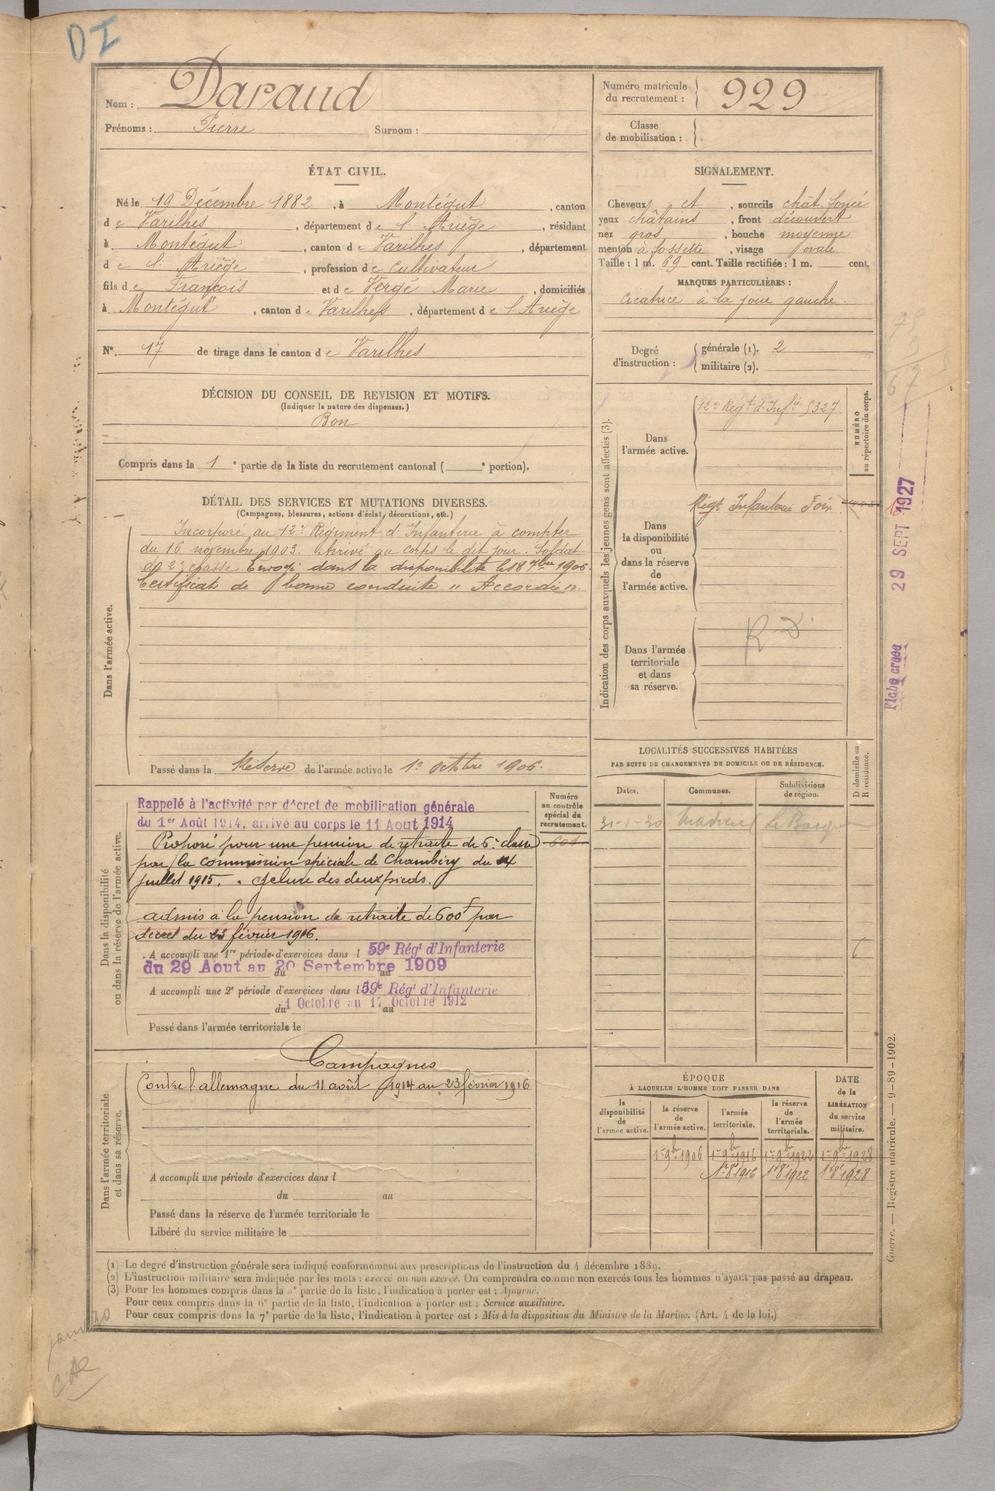 DI
Nom : Daraud
Prénoms : Pierre Surnom :
Numéro matricule du recrutement : 929
Classe de mobilisation :
ÉTAT CIVIL.
Né le 19 Décembre 1882, à Montégut, canton
de Varilhes, département de l'Ariège, résidant
à Montégut, canton de Varilhes, département
de l'Ariège, profession de cultivateur
fils de François et de Vergé Marie, domiciliés
à Montégut, canton de Varilhes, département de l'Ariège
N° 17 de tirage dans le canton de Varilhes
SIGNALEMENT.
Cheveux et, sourcils chat. foncé
yeux châtains, front découvert
nez gros, bouche moyenne
menton à fossette, visage ovale
Taille : 1 m. 69 cent. Taille rectifiée : 1 m. cent.
MARQUES PARTICULIÈRES :
cicatrice à la joue gauche.
Degré d'instruction : générale (1). 2
militaire (2).
DÉCISION DU CONSEIL DE REVISION ET MOTIFS.
(Indiquer la nature des dispenses.)
Bon
Compris dans la 1e partie de la liste du recrutement cantonal ( e portion).
DÉTAIL DES SERVICES ET MUTATIONS DIVERSES.
(Campagnes, blessures, actions d'éclat, décorations, etc.)
Dans l'armée active.
Incorporé au 12e Régiment d'Infanterie à compter
du 16 novembre 1903. Arrivé au corps le dit jour. Soldat
de 2e classe. Envoyé dans la disponibilité le 18 7bre 1906.
Certificat de bonne conduite "Accordé".
Passé dans la Réserve de l'armée active le 1er octobre 1906.
Indication des corps auxquels les jeunes gens sont affectés (3).
NUMÉRO au répertoire du corps.
Dans l'armée active.
12e Régt d'Infie 5327
Dans la disponibilité ou dans la réserve de l'armée active.
Régt Infanterie Foix
Dans l'armée territoriale et dans sa réserve.
R D
29 SEPT 1927
Fiche créée
67
LOCALITÉS SUCCESSIVES HABITÉES
PAR SUITE DE CHANGEMENTS DE DOMICILE OU DE RÉSIDENCE.
D domicile ou R résidence.
Dates. Communes. Subdivisions de région.
Dans la disponibilité ou dans la réserve de l'armée active.
Numéro au contrôle spécial du recrutement.
Rappelé à l'activité par décret de mobilisation générale
du 1er Août 1914, arrivé au corps le 11 Aout 1914
Proposé pour une pension de retraite de 6e classe
par la commission spéciale de Chambéry du
juillet 1915. "Gelure des deux pieds.
admis à la pension de retraite de 600f par
décret du 23 février 1916.
A accompli une 1re période d'exercices dans l 59e Régt d'Infanterie
du 29 Aout au 20 Septembre 1909
A accompli une 2e période d'exercices dans l 59e Régt d'Infanterie
du 1 Octobre au 17 Octobre 1912
Passé dans l'armée territoriale le
Dans l'armée territoriale et dans sa réserve.
Campagnes
Contre l'allemagne du 11 août 1914 au 23 février 1916
A accompli une période d'exercices dans l
du au
Passé dans la réserve de l'armée territoriale le
Libéré du service militaire le
ÉPOQUE
À LAQUELLE L'HOMME DOIT PASSER DANS
DATE de la LIBÉRATION du service militaire.
la disponibilité de l'armée active.
la réserve de l'armée active.
l'armée territoriale.
la réserve de l'armée territoriale.
1er 9bre 1906 1er 9bre 1916 1er 9bre 1922 1er 9bre 1928
1er 8bre 1916 1er 8bre 1922 1er 8bre 1928
Guerre. — Registre matricule. — 9-89-1902.
(1) Le degré d'instruction générale sera indiqué conformément aux prescriptions de l'instruction du 4 décembre 1889.
(2) L'instruction militaire sera indiquée par les mots : exercé ou non exercé. On comprendra comme non exercés tous les hommes n'ayant pas passé au drapeau.
(3) Pour les hommes compris dans la 5e partie de la liste, l'indication à porter est : Ajourné.
Pour ceux compris dans la 6e partie de la liste, l'indication à porter est : Service auxiliaire.
Pour ceux compris dans la 7e partie de la liste, l'indication à porter est : Mis à la disposition du Ministre de la Marine. (Art. 4 de la loi.)